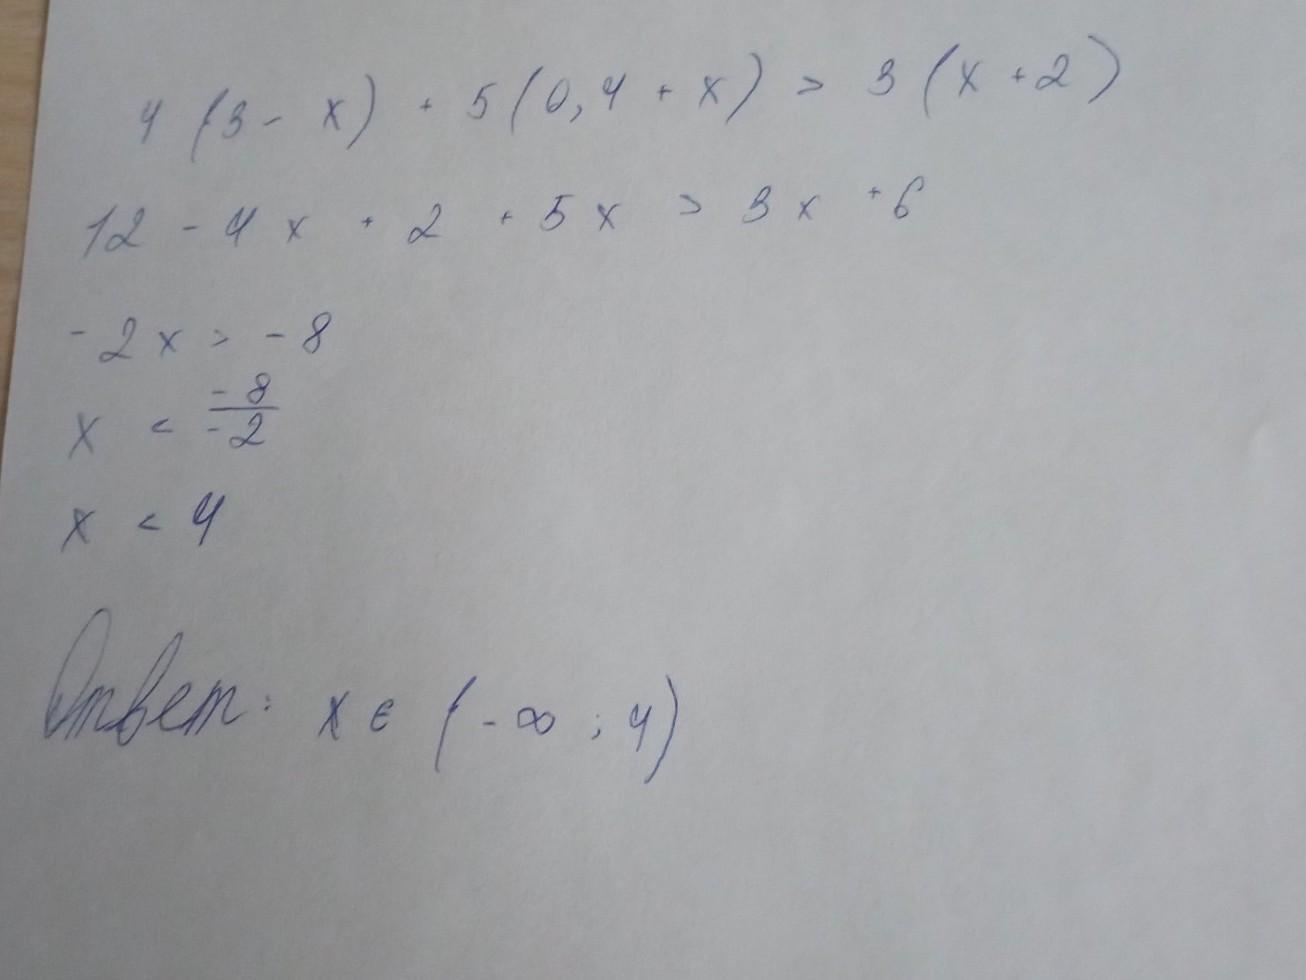 4 (3 - x) + 5 (0,4 + x) > 3 (x + 2)
12 - 4x + 2 + 5x > 3x + 6
-2x > -8
x < -8/-2
x < 4
Ответ: x ∈ (-∞ ; 4)